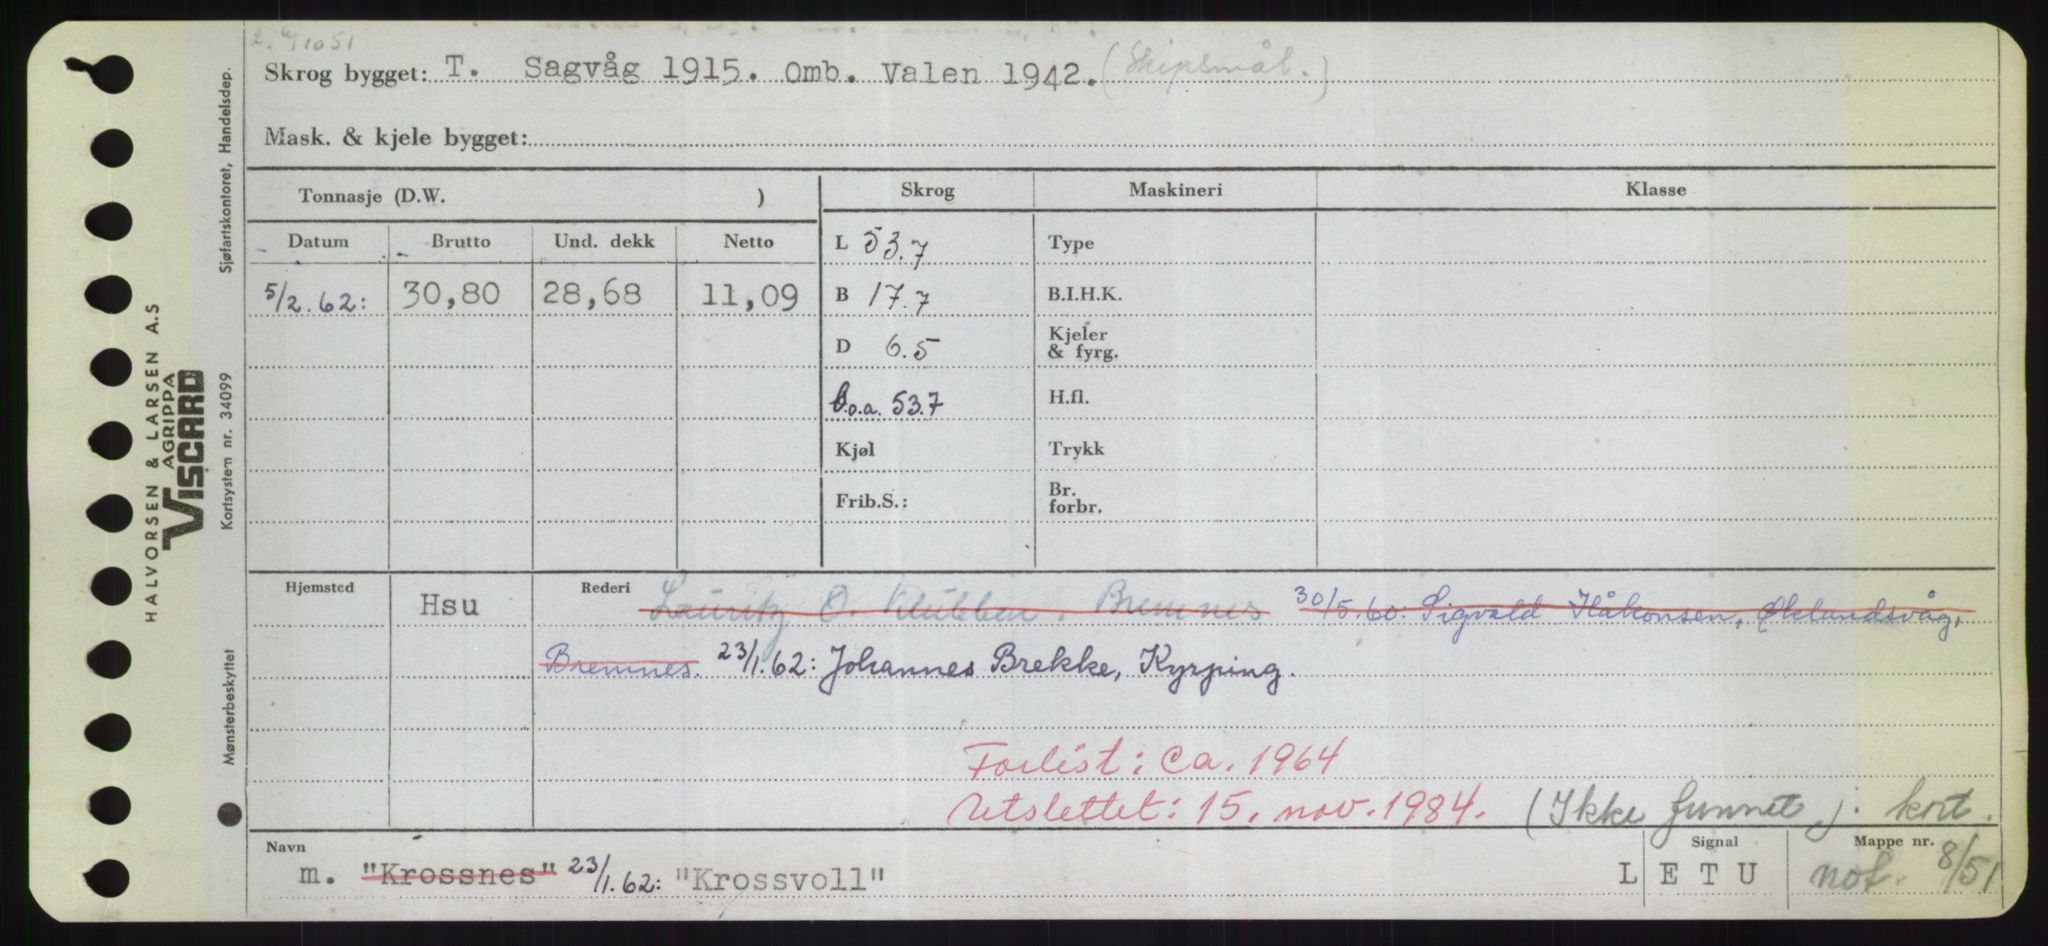 2. 4/10 51
Skrog bygget: T. Sagvåg 1915. Omb. Valen 1942. (Skipsmål.)
Mask. & kjele bygget:
Tonnasje (D.W. )
Skrog Maskineri Klasse
Datum Brutto Und. dekk Netto
L 53.7 Type
5/2.62: 30,80 28,68 11,09
B 17.7 B.I.H.K.
D 6.5 Kjeler & fyrg.
l.o.a. 53.7 H.fl.
Kjøl Trykk
Frib.S.: Br. forbr.
Hjemsted Hsu Rederi Lauritz O. Klubben, Bremnes 30/5.60: Sigvald Håkonsen, Øklandsvåg,
Bremnes. 23/1.62: Johannes Brekke, Kyrping.
Forlist: ca. 1964
Utslettet: 15. nov. 1984. (Ikke funnet) j. kort.
Navn Signal Mappe nr.
m. "Krossnes" 23/1.62: "Krossvoll" L E T U not. 8/51
HALVORSEN & LARSEN A.S
AGRIPPA
VISCARD
Sjøfartskontoret, Handelsdep.
Kortsystem nr. 34099
Mønsterbeskyttet